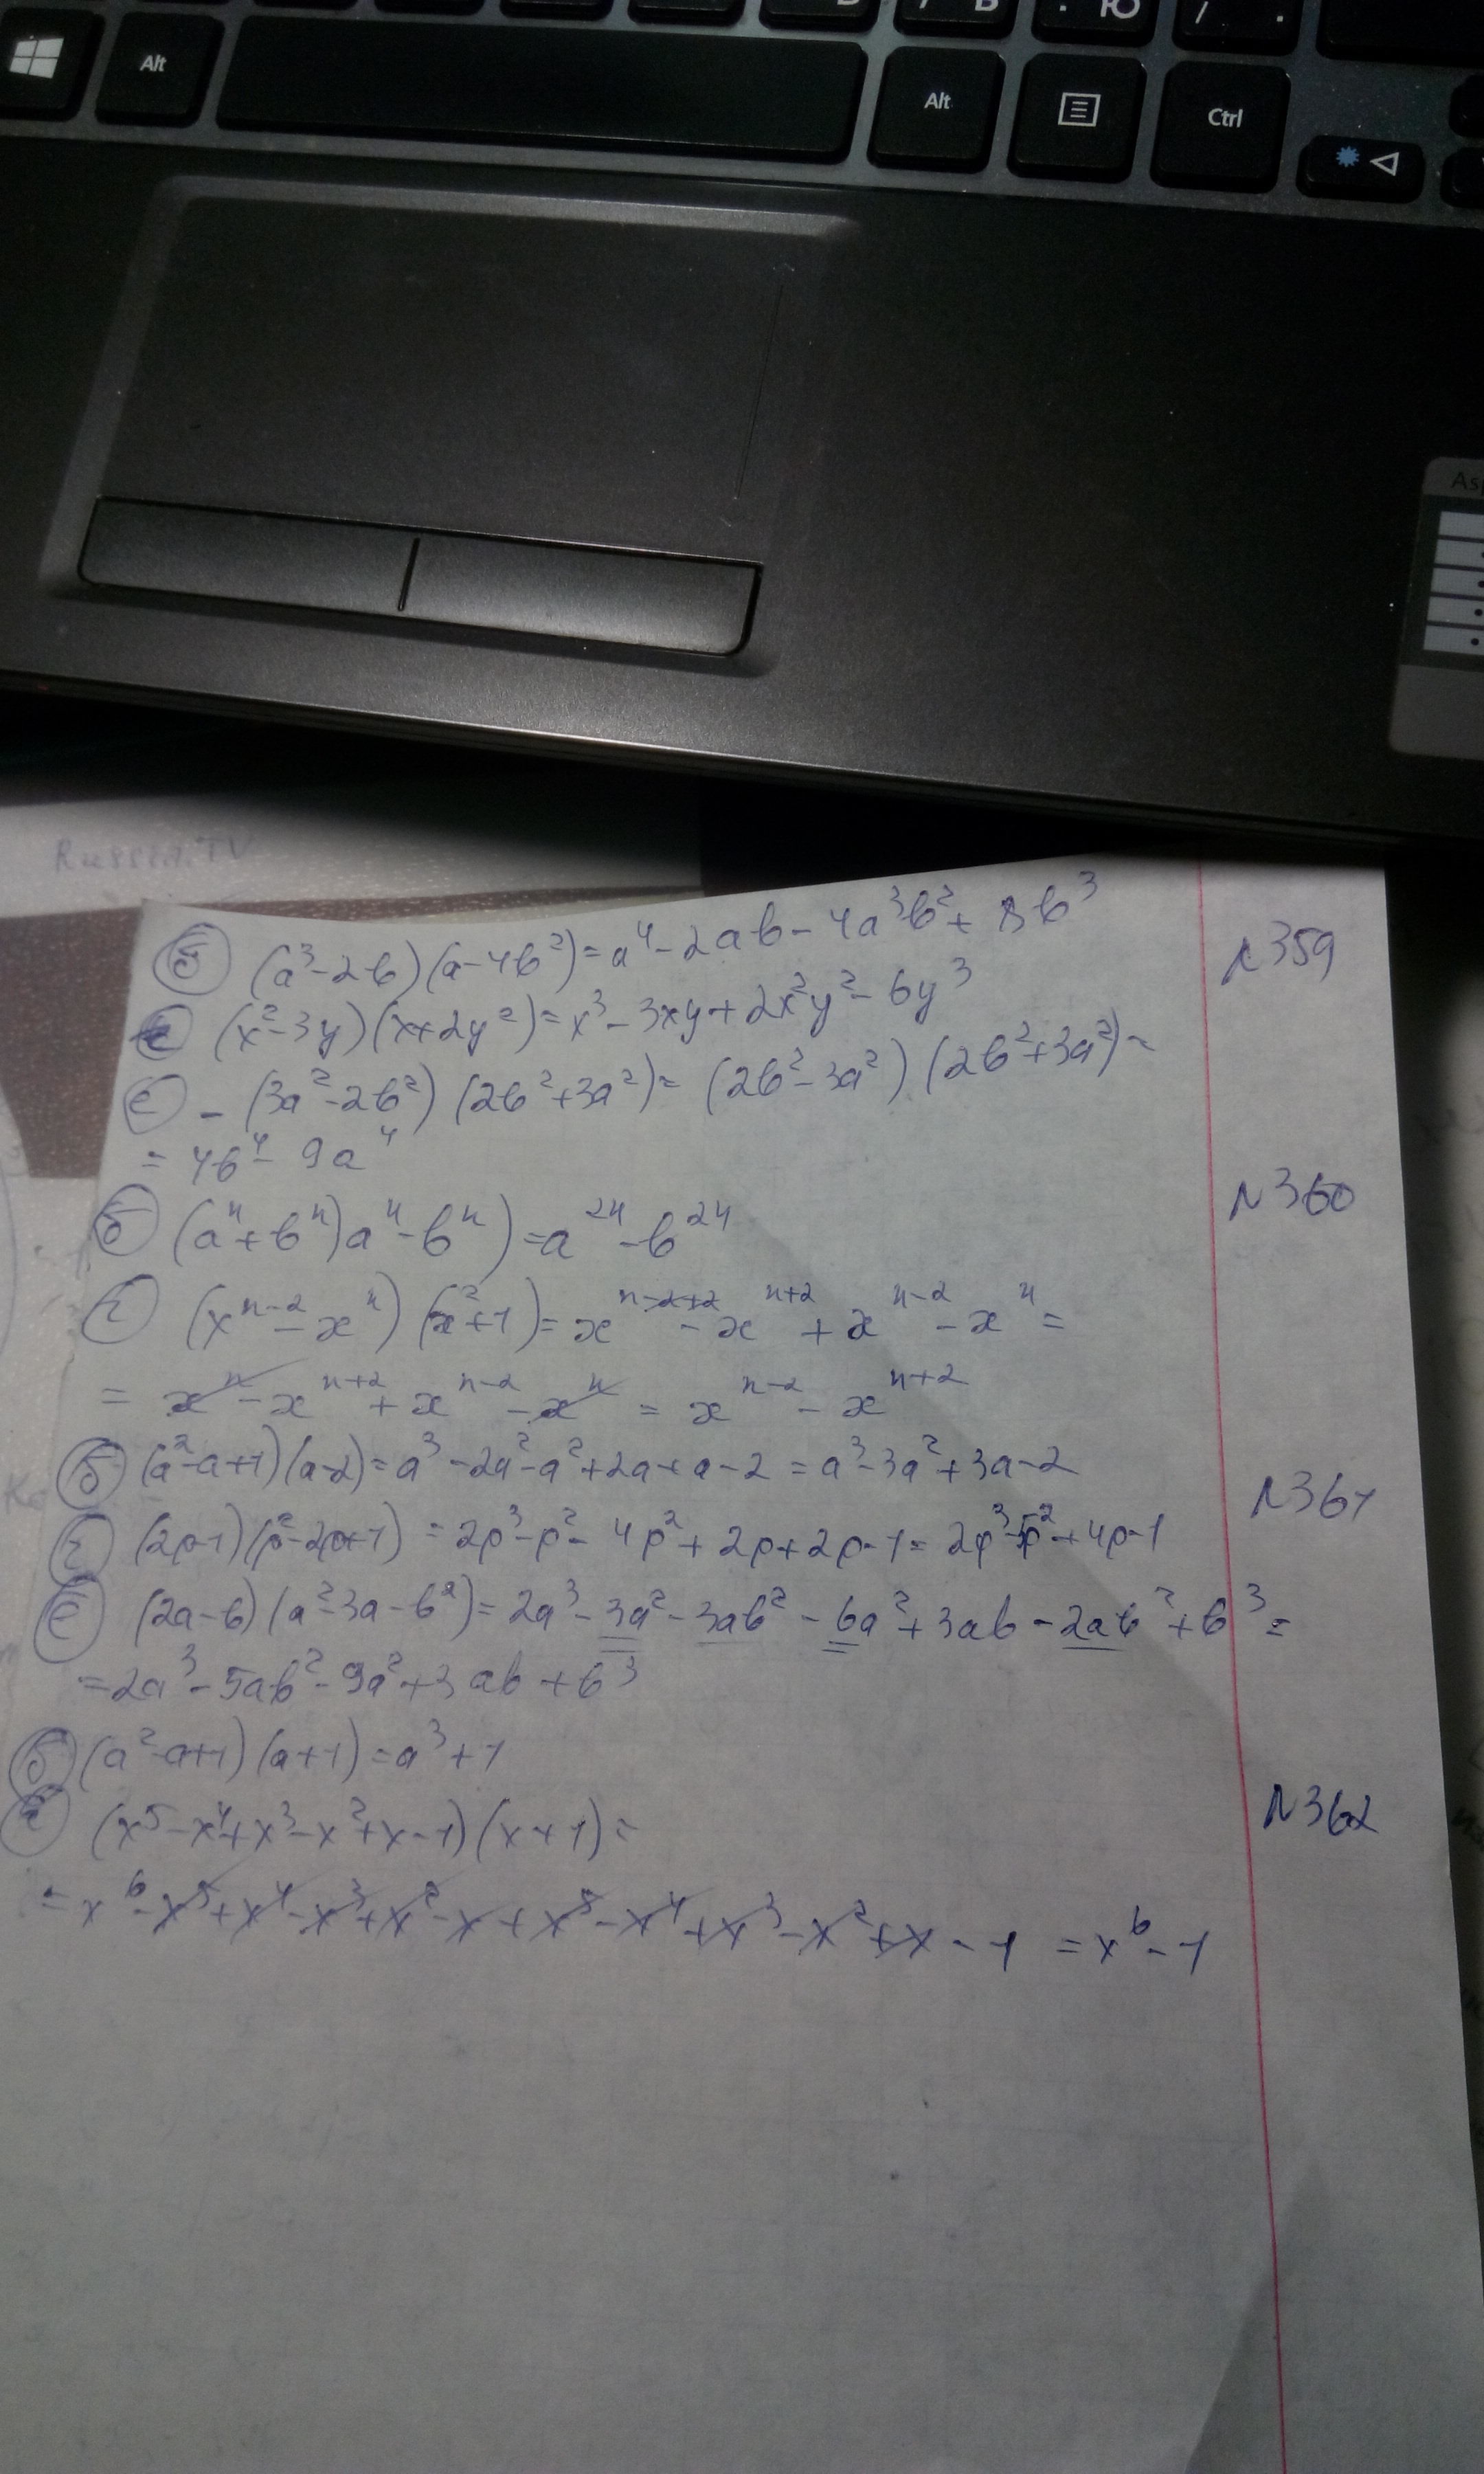 Ь / .
Ю / .
Alt Alt Ctrl
As
Russian TV
б) (a³-2b)(a-4b²)=a⁴-2ab-4a³b²+8b³ N359
г) (x²-3y)(x+2y²)=x³-3xy+2x²y²-6y³
е) -(3a²-2b²)(2b²+3a²)=(2b²-3a²)(2b²+3a²)=
=4b⁴-9a⁴
б) (aⁿ+bⁿ)aⁿ-bⁿ)=a²ⁿ-b²ⁿ N360
г) (xⁿ⁻²-xⁿ)(x²+1)=xⁿ⁻²⁺²-xⁿ⁺²+xⁿ⁻²-xⁿ=
=xⁿ-xⁿ⁺²+xⁿ⁻²-xⁿ=xⁿ⁻²-xⁿ⁺²
б) (a²-a+1)(a-2)=a³-2a²-a²+2a+a-2=a³-3a²+3a-2 N361
г) (2p-1)(p²-2p+1)=2p³-p²-4p²+2p+2p-1=2p³-5p²+4p-1
е) (2a-b)(a²-3a-b²)=2a³-3a²-3ab²-6a²+3ab-2ab²+b³=
=2a³-5ab²-9a²+3ab+b³
б) (a²-a+1)(a+1)=a³+1
(x⁵-x⁴+x³-x²+x-1)(x+1)= N362
=x⁶-x⁵+x⁴-x³+x²-x+x⁵-x⁴+x³-x²+x-1=x⁶-1